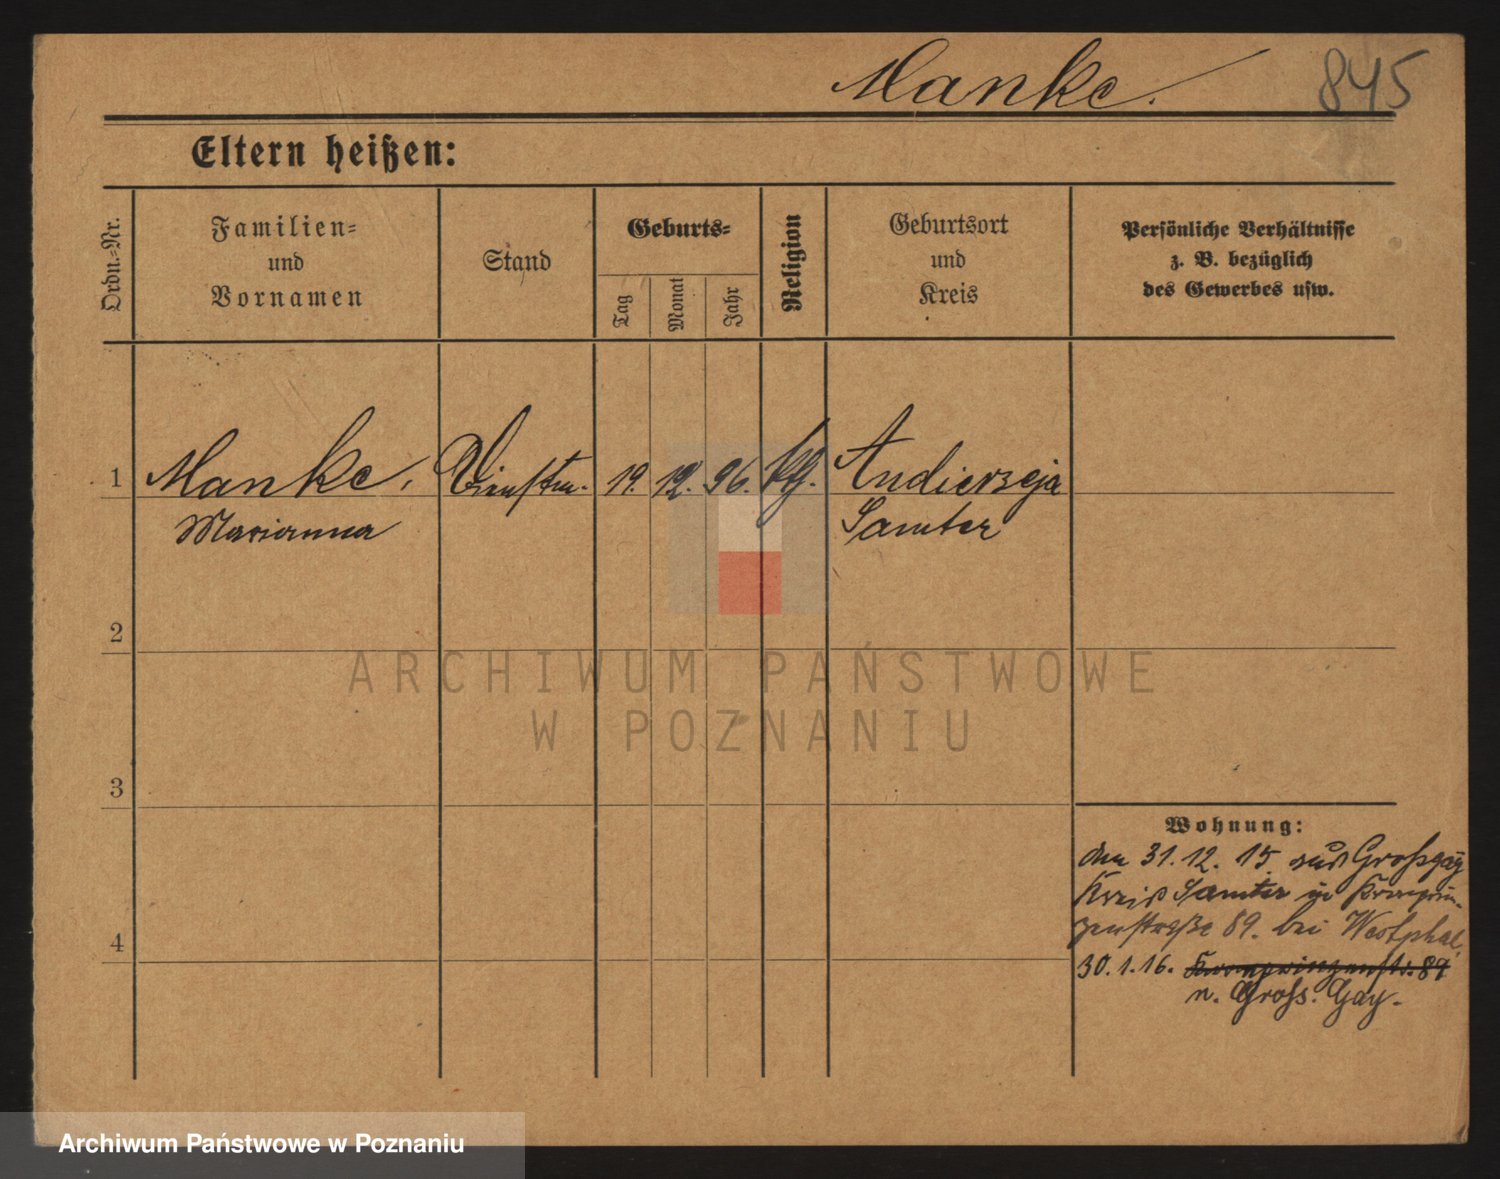 Manke.
845
Eltern heißen:
Ordn.-Nr.
Familien-
und
Vornamen
Stand
Geburts-
Tag
Monat
Jahr
Religion
Geburtsort
und
Kreis
Persönliche Verhältnisse
z. B. bezüglich
des Gewerbes usw.
1
Manke,
Marianna
Dienstm.
19. 12. 96.
Andierzeja
Samter
2
ARCHIWUM PAŃSTWOWE
W POZNANIU
3
Wohnung:
den 31.12.15 aus Großgay
Kreis Samter in Kronprin-
zenstraße 89. bei Westphal
4
30.1.16. Kronprinzenstr. 89
n. Gross. Gay.
Archiwum Państwowe w Poznaniu